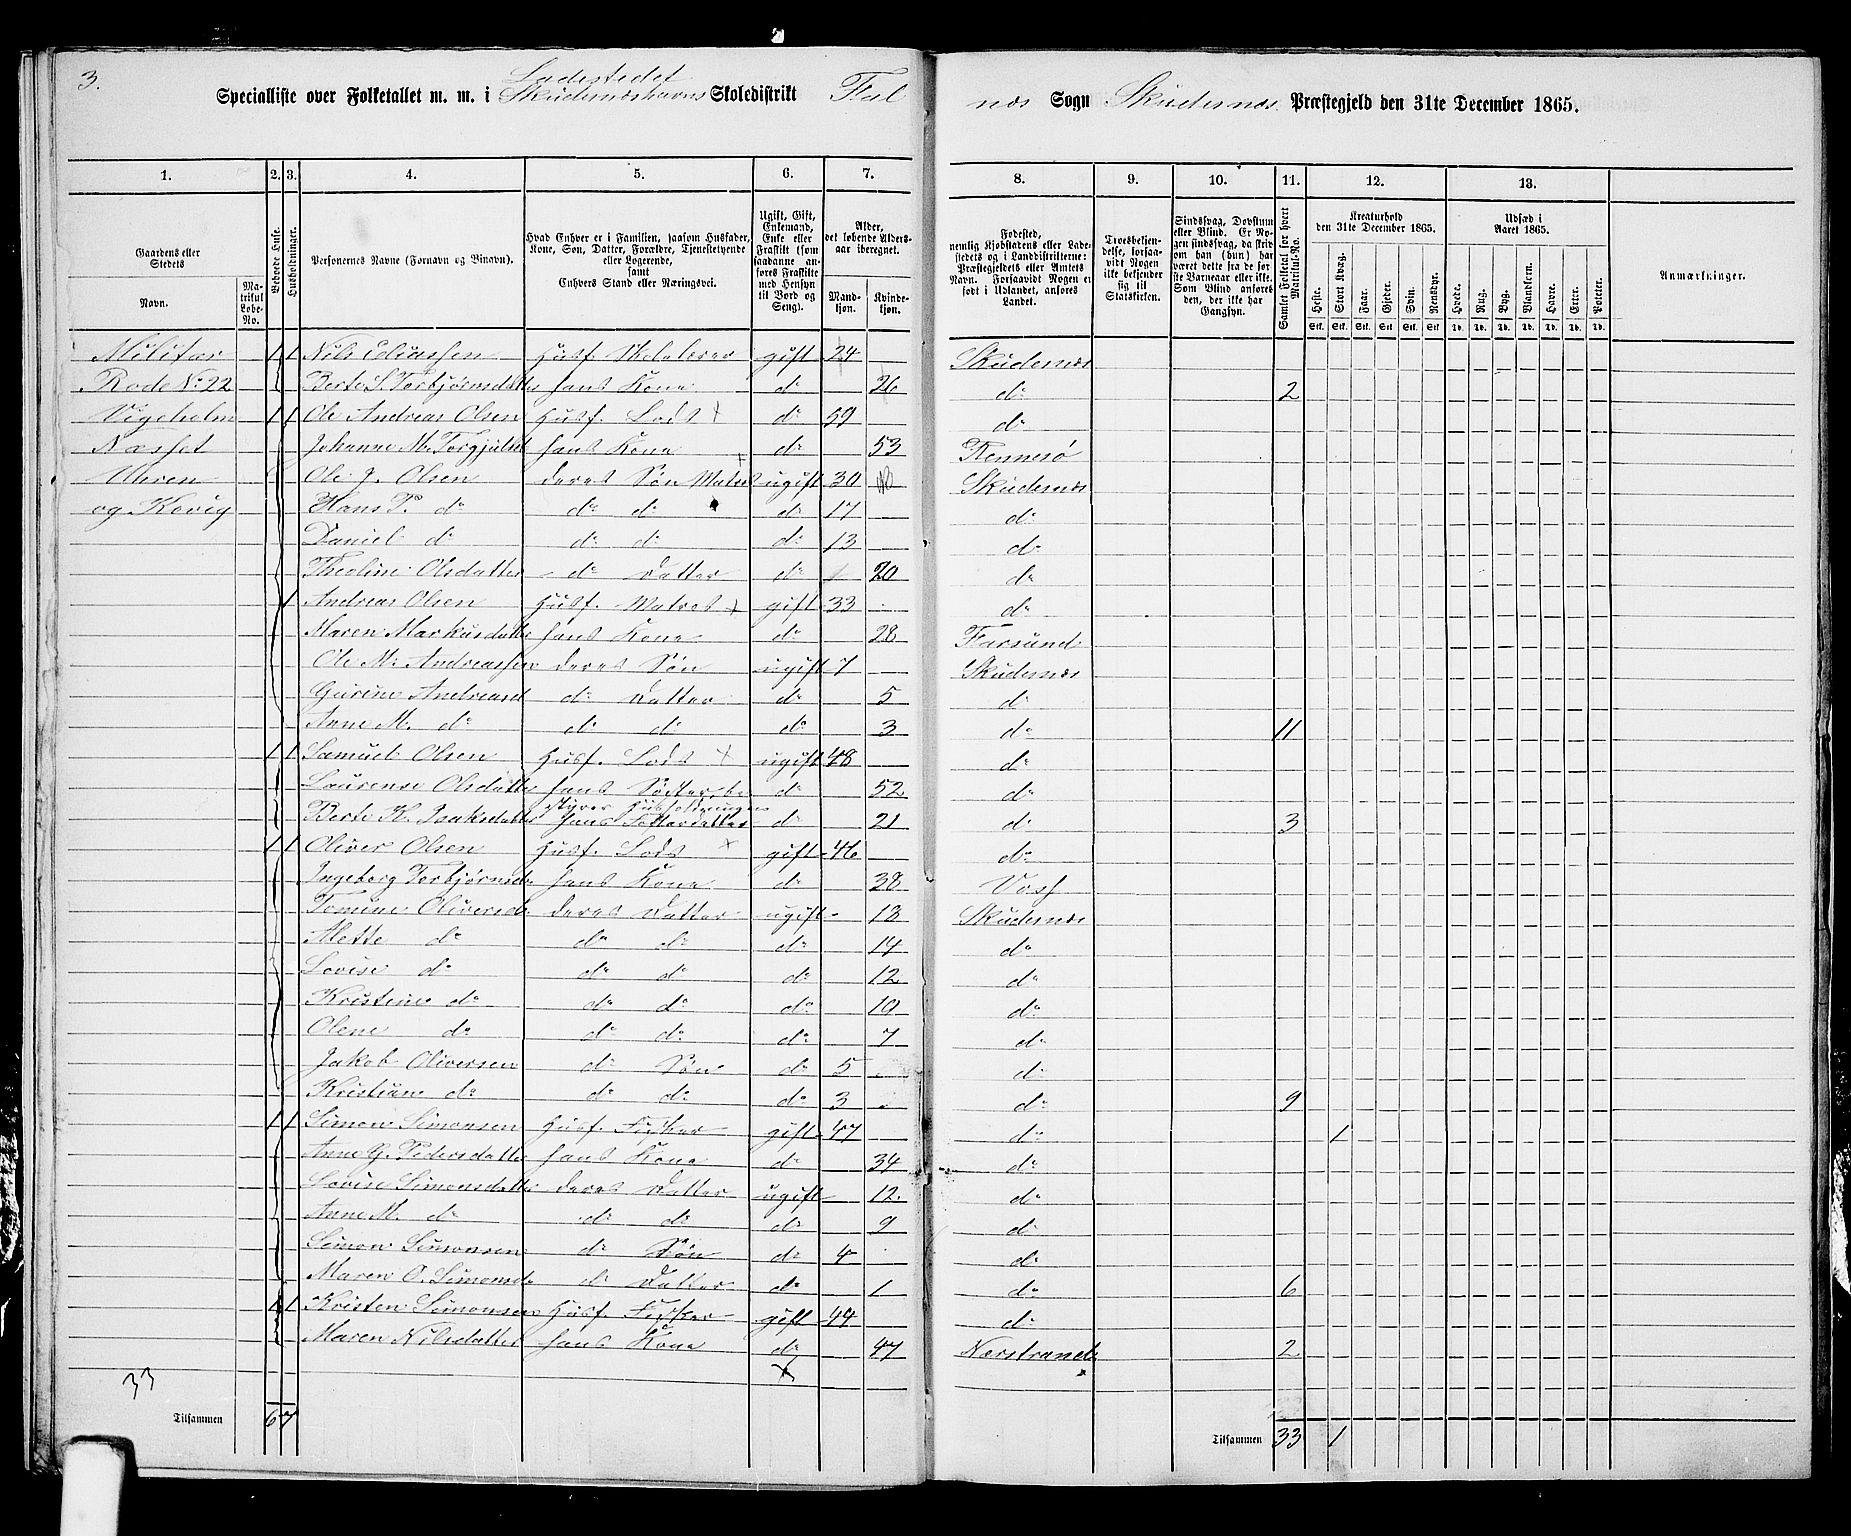 3.
Specialliste over Folketallet m. m. i Ladestedet Skudesnæshavns Skoledistrikt Fal
næs Sogn Skudesnæs Præstegjeld den 31te December 1865.
1. 2. 3. 4. 5. 6. 7. 8. 9. 10. 11. 12. 13.
Gaardens eller Stedets
Navn.
Matrikul Løbe-No.
Beboede Huse.
Husholdninger.
Personernes Navne (Fornavn og Binavn).
Hvad Enhver er i Familien, saasom Husfader, Kone, Søn, Datter, Forældre, Tjenestetyende eller Logerende, samt Enhvers Stand eller Næringsvei.
Ugift, Gift, Enkemand, Enke eller Fraskilt (som saadanne anføres Fraskilte med Hensyn til Bord og Seng).
Alder, det løbende Alders-aar iberegnet.
Mand-kjøn.
Kvinde-kjøn.
Fødested, nemlig Kjøbstadens eller Ladestedets og i Landdistrikterne: Præstegjeldets eller Amtets Navn. Forsaavidt Nogen er født i Udlandet, anføres Landet.
Troesbekjendelse, forsaavidt Nogen ikke bekjender sig til Statskirken.
Sindssvag, Døvstum eller Blind. Er Nogen sindssvag, da skriv om han (hun) har været dette fra de første Barneaar eller ikke. Som Blind anføres den, der ikke har Gangsyn.
Samlet Folketal for hvert Matrikul-No.
Kreaturhold den 31te December 1865.
Heste. Stort Kvæg. Faar. Gjeder. Svin. Rensdyr.
Stk. Stk. Stk. Stk. Stk. Stk.
Udsæd i Aaret 1865.
Hvede. Rug. Byg. Blandkorn. Havre. Erter. Poteter.
Td. Td. Td. Td. Td. Td. Td.
Anmærkninger.
Militær 1 1 Nils Eliassen Husf. Skolelærer gift 24 Skudesnæs
Rode No. 22 Berte S. Torbjørnsdatter hans Kone do 26 do 2
Vigeholm 1 1 Ole Andreas Olsen Husf. Lods do 59 do
Næsset Johanne M. Torgjulsd hans Kone do 53 Rennesø
Ole J. Olsen deres Søn Matros ugift 30 Skudesnæs
og Kovig Hans P. do do do do 17 do
Daniel do do do do 13 do
Theoline Olsdatter do Datter do 20 do
1 Andreas Olsen Husf. Matros gift 33 do
Maren Markusdatter hans Kone do 28 Farsund
Ole M. Andreassen deres Søn ugift 7 Skudesnæs
Gurine Andreasd do Datter do 5 do
Anne M. do do do do 3 do 11
1 1 Samuel Olsen Husf. Lods ugift 48 do
Laurense Olsdatter hans Søster, be do 52 do
styrer Husholdningen
Berte K. Isaksdatter hans Søsterdatter do 21 do 3
1 1 Oliver Olsen Husf. Lods gift 46 do
Ingeborg Torbjørnsd. hans Kone do 38 Voss
Tomine Oliversd. deres Datter ugift 18 Skudesnæs
Alette do do do do 14 do
Lovise do do do do 12 do
Kristine do do do do 10 do
Olene do do do do 7 do
Jakob Oliversen do Søn do 5 do
Kristian do do do do 3 do 9
1 1 Simon Simonsen Husf. Fisker gift 47 do 1
Anne G. Pedersdatter hans Kone do 34 do
Lovise Simonsdatter deres Datter ugift 12. do
Anne M. do do do do 9 do
Simon Simonsen do Søn do 4 do
Maren O. Simonsd. do Datter do 1 do 6
1 1 Kristen Simonsen Husf. Fisker gift 44 do
Maren Nilsdatter hans Kone do 47 Nærstrand 2
33
Tilsammen 6 7
Tilsammen 33 1